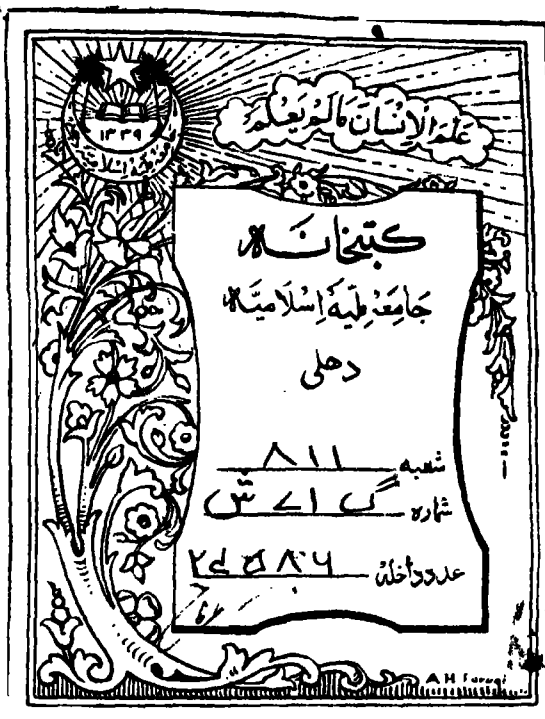 عَلَّمَ الْاِنْسَانَ مَا لَمْ يَعْلَمْ
۱۳۳۹
کتبخانہ
جَامِعَہ مِلّیَہ اِسْلَامیَّہ
دھلی
شعبہ ۸۱۱
شمارہ گ اے ش
عدد داخلہ
A H Faruqi